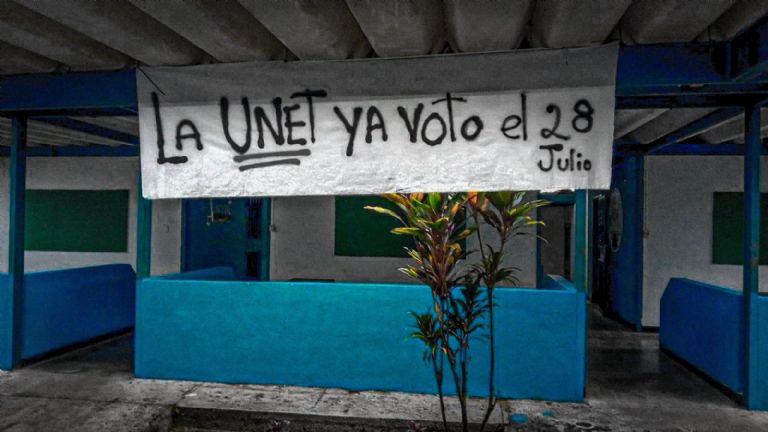 La UNET ya voto el 28
Julio